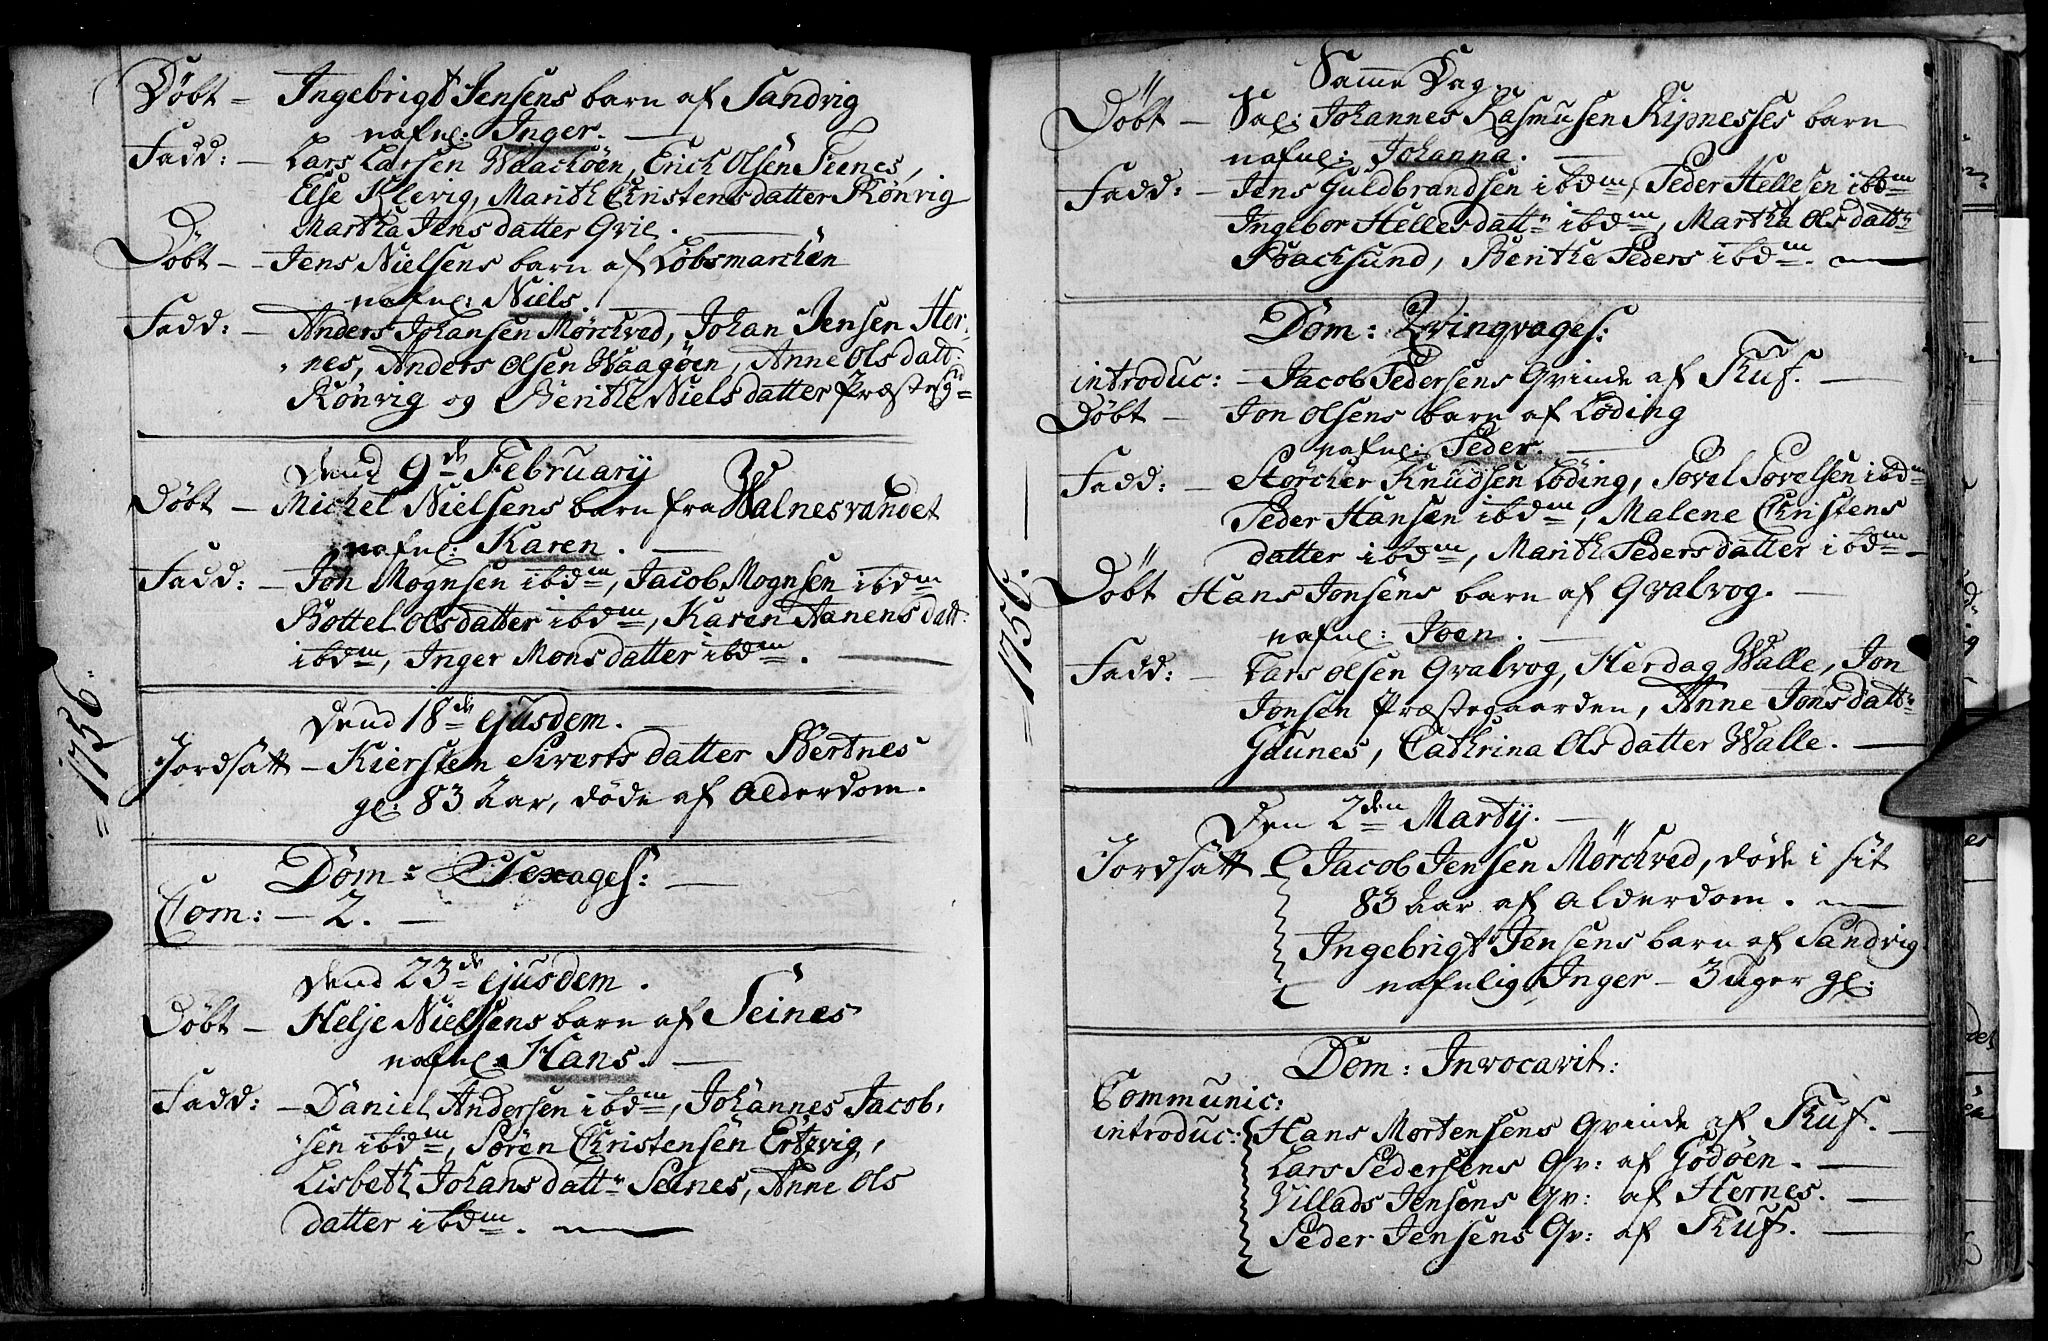 Døbt – Ingebrigt Jensens barn af Sandvig
nafnl: Inger.
Fadd: – Lars Larsen Waachøen, Erich Olsen Seines,
Else Klevig, Marith Christensdatter Rønvig
Martha Jensdatter Qvie.
Døbt – Jens Nielsens barn af Løbsmarchen
nafnl: Niels.
Fadd: – Anders Johansen Mørchved, Johan Jensen Her-
nes, Anders Olsen Waagøen, Anne Olsdatt:
Rønvig og Berithe Nielsdatter Præsteg
Dend 9de February
Døbt – Michel Nielsens barn fra Walnesvandet
nafnl: Karen.
Fadd: – Jon Mognsen ibdm, Jacob Mognsen ibdm
Bottel Olsdatter ibdm, Karen Aanensdatt:
ibdm, Inger Monsdatter ibdm.
= 1756 =
Dend 18de ejusdem.
Jordsatt – Kiersten Sivertsdatter Bertnes
gl: 83 Aar, døde af Alderdom.
Dom: Sexages:
Com: – 2. –
Dend 23de ejusdem.
Døbt – Helje Nielsens barn af Seines
nafnl: Hans.
Fadd: – Daniel Andersen ibdm, Johannes Jacob-
sen ibdm, Søren Christensen Ertzvig,
Lisbeth Johansdattr Seines, Anne Ols
datter ibdm.
Samme Dag.
Døbt – Sal: Johannes Rasmusen Kipnesses barn
nafnl: Johanna.
Fadd: – Jens Guldbrandsen ibdm, Peder Hellesen ibdm
Ingebor Hellesdattr ibdm, Martha Olsdattr
Poachsund, Berithe Peders ibdm.
Dom: Qvingvages:
introduc: – Jacob Pedersens Qvinde af Skuf.
Døbt – Jon Olsens barn af Løding
nafnl: Peder.
Fadd: – Størcher Knudsen Løding, Povel Povelsen ibdm
Peder Hansen ibdm, Malene Christens
datter ibdm, Marith Pedersdatter ibdm
= 1756. =
Døbt Hans Jonsens barn af Qvalvog.
nafnl: Joen.
Fadd: – Lars Olsen Qvalvog, Herdag Walle, Jon
Jonsen Præstegaarden, Anne Jonsdattr
Gaunes, Cathrina Olsdatter Walle.
Den 2den Martij.
Jordsatt – Jacob Jensen Mørchved, døde i sit
83 Aar af Alderdom.
Ingebrigt Jensens barn af Sandvig
nafnlig Inger – 3 Uger gl:
Dom: Invocavit:
Communic:
introduc: Hans Mortensens Qvinde af Skuf.
Lars Pedersens Qv: af Godøen.
Villads Jensens Qv: af Hernes.
Peder Jensens Qv: af Skuf.